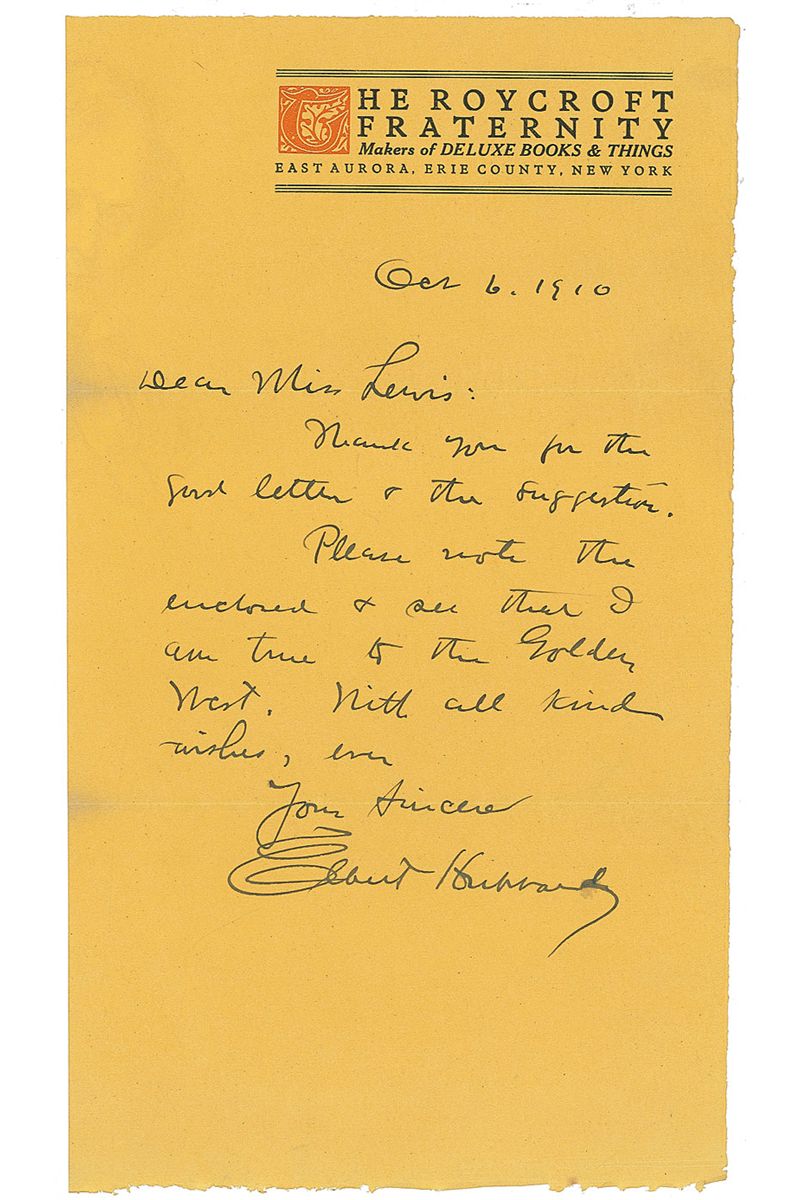 THE ROYCROFT
FRATERNITY
Makers of DELUXE BOOKS & THINGS
EAST AURORA, ERIE COUNTY, NEW YORK
Oct 6. 1910
Dear Miss Lewis:
Thank you for the
good letter & the suggestion.
Please note the
enclosed & see that I
am true to the Golden
West. With all kind
wishes, ever
Your Sincere
Elbert Hubbard